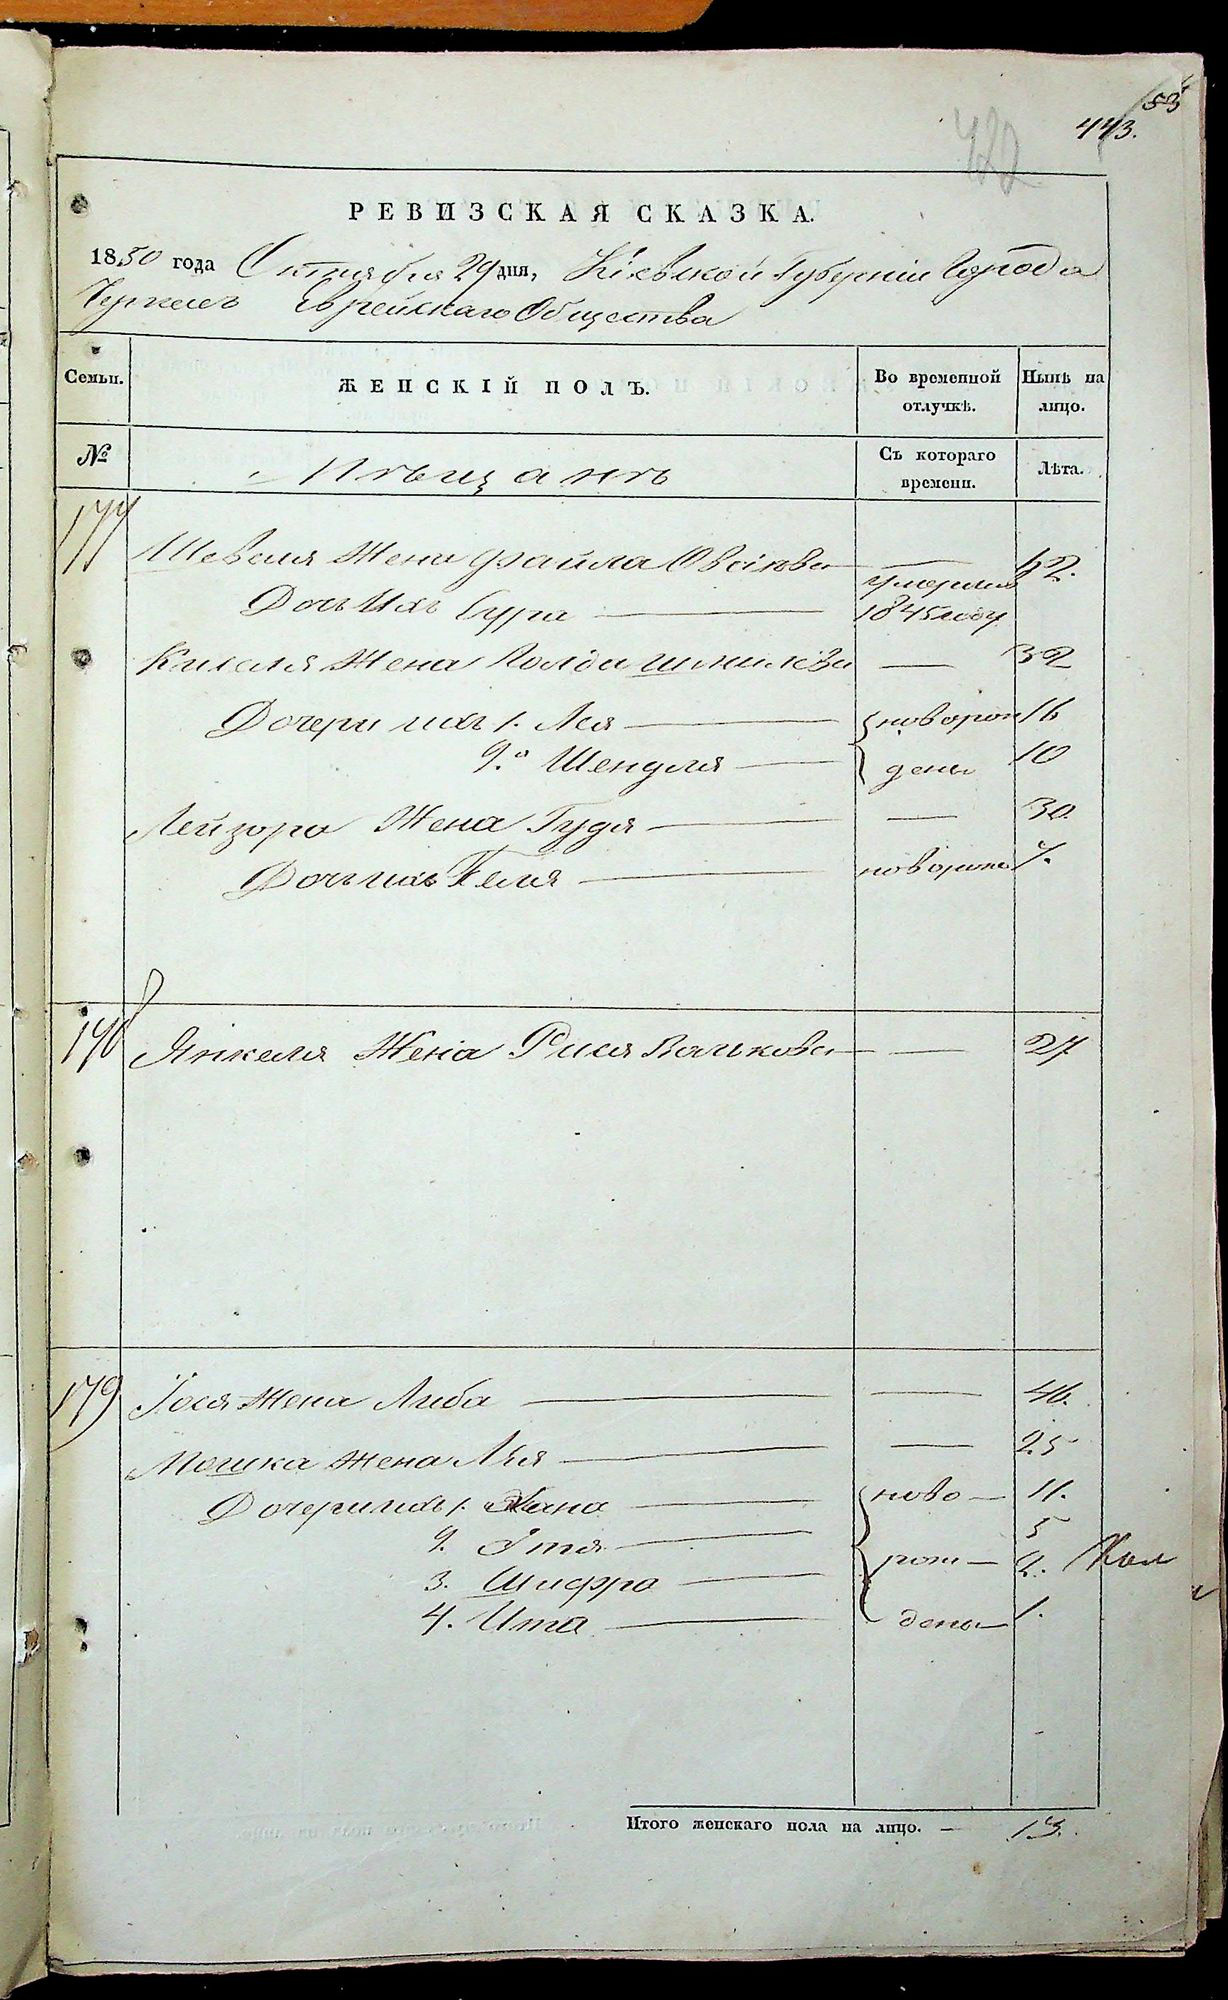 83
443.
422
РЕВИЗСКАЯ СКАЗКА.
1850 года Октября 29 дня, Кіевской Губерніи Города
Черкасъ Еврейскаго Общества
Семьи.
ЖЕНСКІЙ ПОЛЪ.
Во временной отлучкѣ.
Нынѣ на лицо.
№
Мѣщанъ
Съ котораго времени.
Лѣта.
177
Шевеля Жена Файла Овсіова — — 62.
Дочь Ихъ Сура — умерла 1845 году
Киселя Жена Голда Шмилева — 32
Дочери ихъ 1. Лея — новорож 16
2.я Шендля — дены 10
Лейзора Жена Гудя — — 30.
Дочь ихъ Беля — новорожд 7.
178
Янкеля Жена Рися Волькова — — 27
179
Іося Жена Либа — — 46.
Мошка Жена Лея — — 25
Дочери ихъ 1. Хана — ново — 11.
2. Этя — 5
3. Шифра — рож — 2.
4. Ита — дены — 1.
Итого женскаго пола на лицо. — 13.